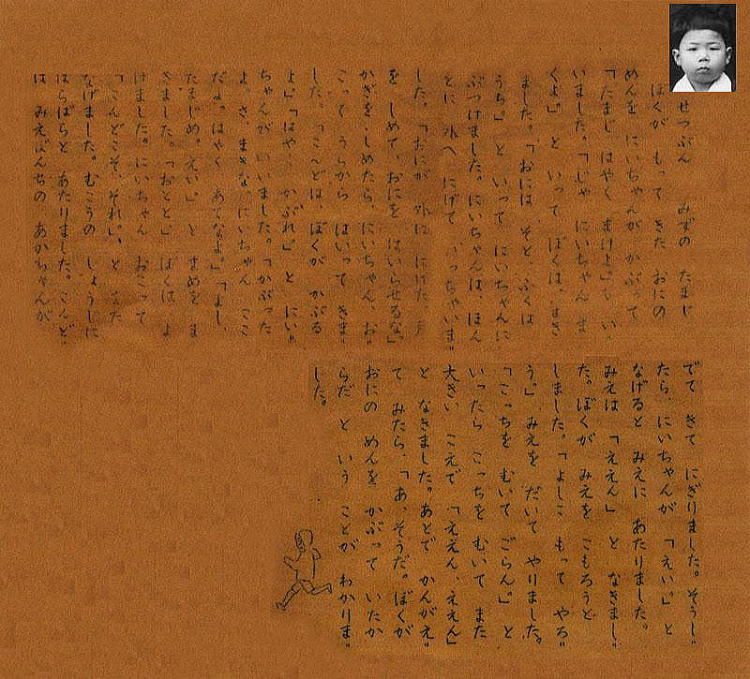 せつぶん　みずの　たまじ
ぼくが　もって　きた　おにの
めんを　にいちゃんが　かぶって
「たまじ　はやく　まけよ」と　い
いました。「じゃ　にいちゃん　ま
くよ」　と　いって　ぼくは、まき
ました。「おには　そと　ふくは
うち」　と　いって　にいちゃんに
ぶつけました。にいちゃんは、ほん
とに　外へ　にげて　いっちゃいま
した。「おにが　外に　にげた　と
を　しめて、おにを　はいらせるな」
かぎを、しめたら、にいちゃん、お
こって　うらから　はいって　きま
した。「こんどは、ぼくが　かぶる
よ」「はや　かぶれ」　と　にい
ちゃんが　いいました。「かぶった
よ。さ、まきな、にいちゃん　ここ
だよ。はやく　あてなよ。」「よし、
たまじめ。えい」　と　まめを　ま
きました。「おとと」　ぼくは　よ
けました。にいちゃん　おこって
「こんどこそ、それい」　と　また
なげました。むこうの　しょうじに
ぱらぱらと　あたりました。こんど
は　みえぼんちの　あかちゃんが
でて　きて　にぎりました。そうし
たら、にいちゃんが　「えい。」　と
なげると　みえに　あたりました。
みえは　「ええん」　と　なきまし
た。ぼくが　みえを　こもろうと
しました。「よしこ　もって　やろ
う」　みえを　だいて　やりました。
「こっちを　むいて　ごらん。」　と
いったら　こっちを　むいて　また
大きい　こえで　「ええん、ええん」
と　なきました。あとで　かんがえ
て　みたら、「あ、そうだ。ぼくが
おにの　めんを　かぶって　いたか
らだ　と　いう　ことが　わかりま
した。